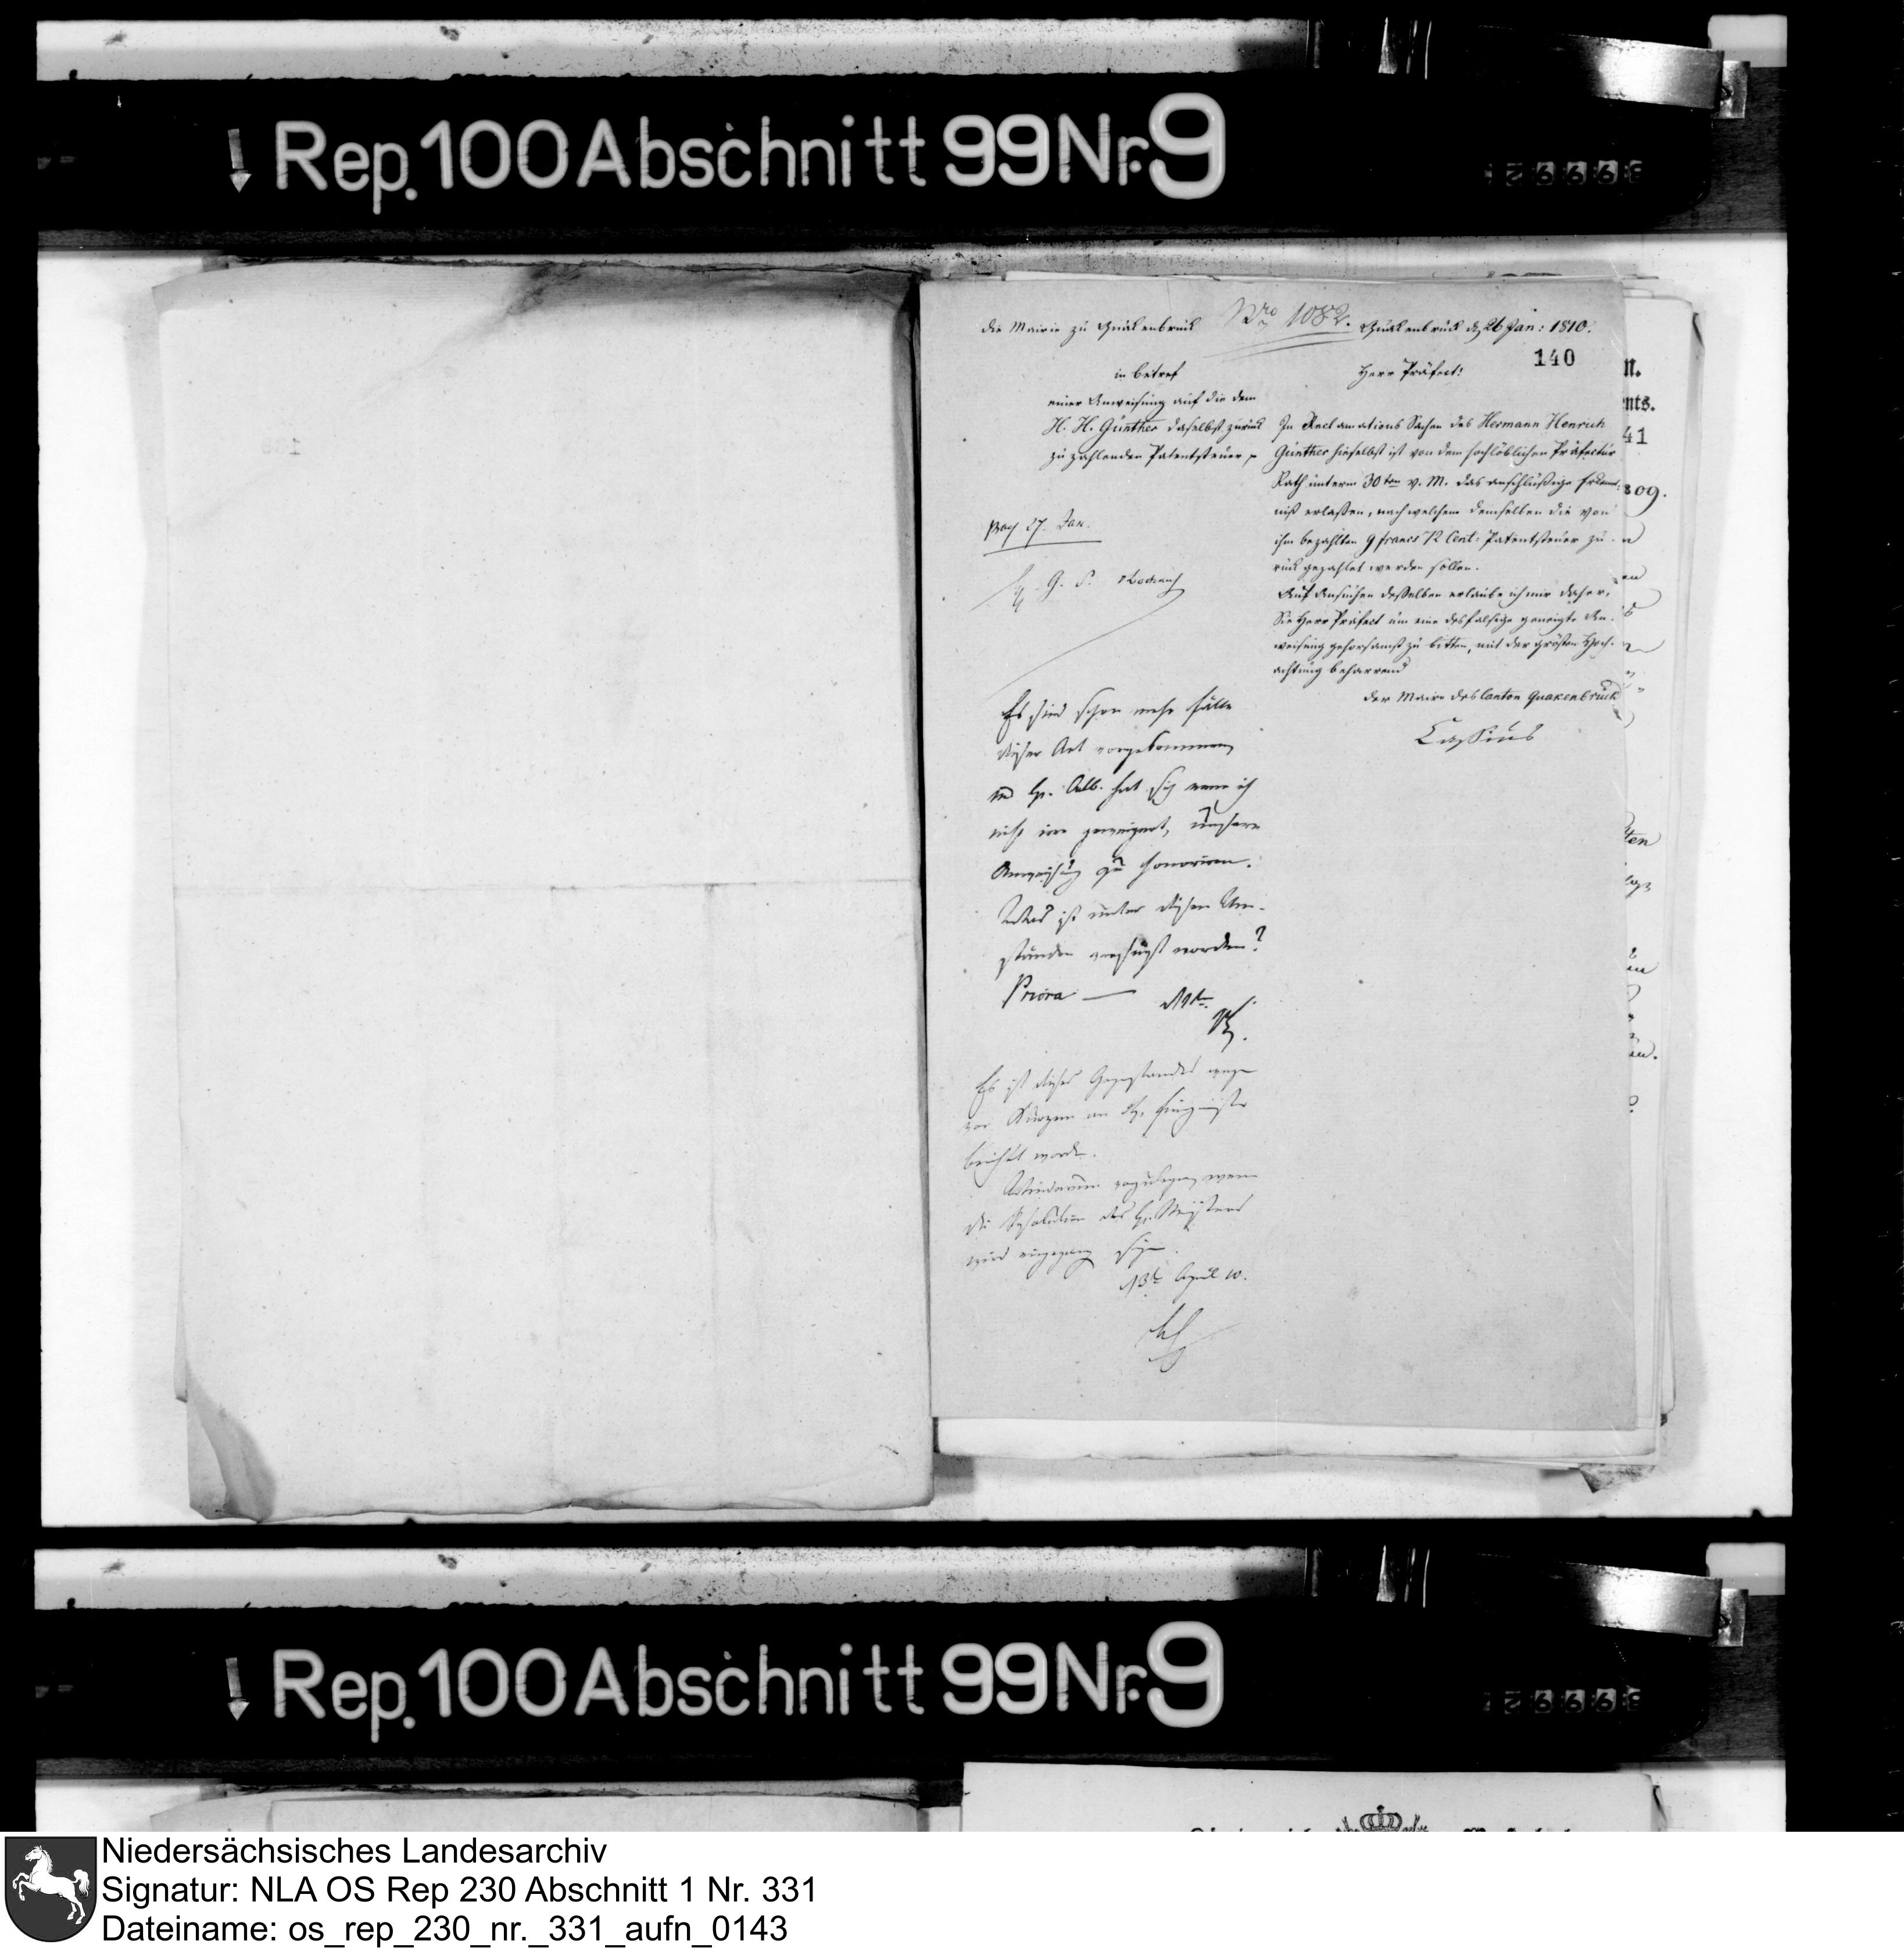 Rep. 100 Abschnitt 99 Nr. 9
die Mairie zu Quakenbrück
Nro 1082.
Quakenbrück d 26 Jan: 1810.
140
in Betref
einer Anweisung auf die dem
H. H. Günther daselbst zurück
zu zahlenden Patentsteuer
27. Jan.
G. S.
Herr Präfect!
In Reclamations Sachen des Hermann Henrich
Günther hieselbst ist von dem hochlöblichen Präfectur
Rath unterm 30ten v. M. das anschlüßige Erkennt-
niß erlaßen, nach welchem demselben die von
ihm bezahlten 9 francs 72 Cent: Patentsteuer zu-
rück gezahlet werden sollen.
Auf Ansuchen deßelben erlaube ich mir daher,
Sie Herr Präfect um eine desfalsige geneigte An-
weisung gehorsamst zu bitten, mit der größten Hoch-
achtung beharrend
der Maire des Canton Quakenbrück
Cassius
Es sind schon mehr Fälle
dieser Art vorgekommen
hat sich wenn ich
nicht irre geweigert, unsere
Anweisung zu honoriren.
Was ist unter diesen Um-
ständen verfügt worden?
Priora —
Es ist dieses Gegenstandes wegen
vor Kurzem an
berichtet worden.
wenn
die Resolution des H. Ministers
wird eingegangen seyn.
13t April 10.
Rep. 100 Abschnitt 99 Nr. 9
Niedersächsisches Landesarchiv
Signatur: NLA OS Rep 230 Abschnitt 1 Nr. 331
Dateiname: os_rep_230_nr._331_aufn_0143